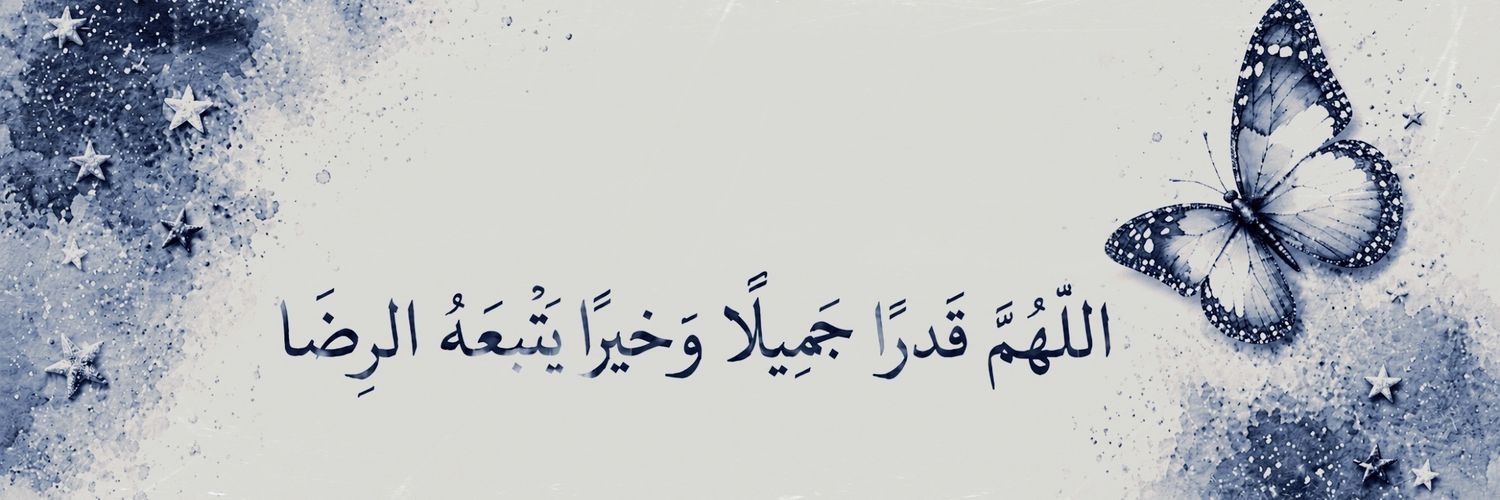 اللّهُمَّ قَدرًا جَمِيلًا وَخيرًا يَتْبعَهُ الرِضَا